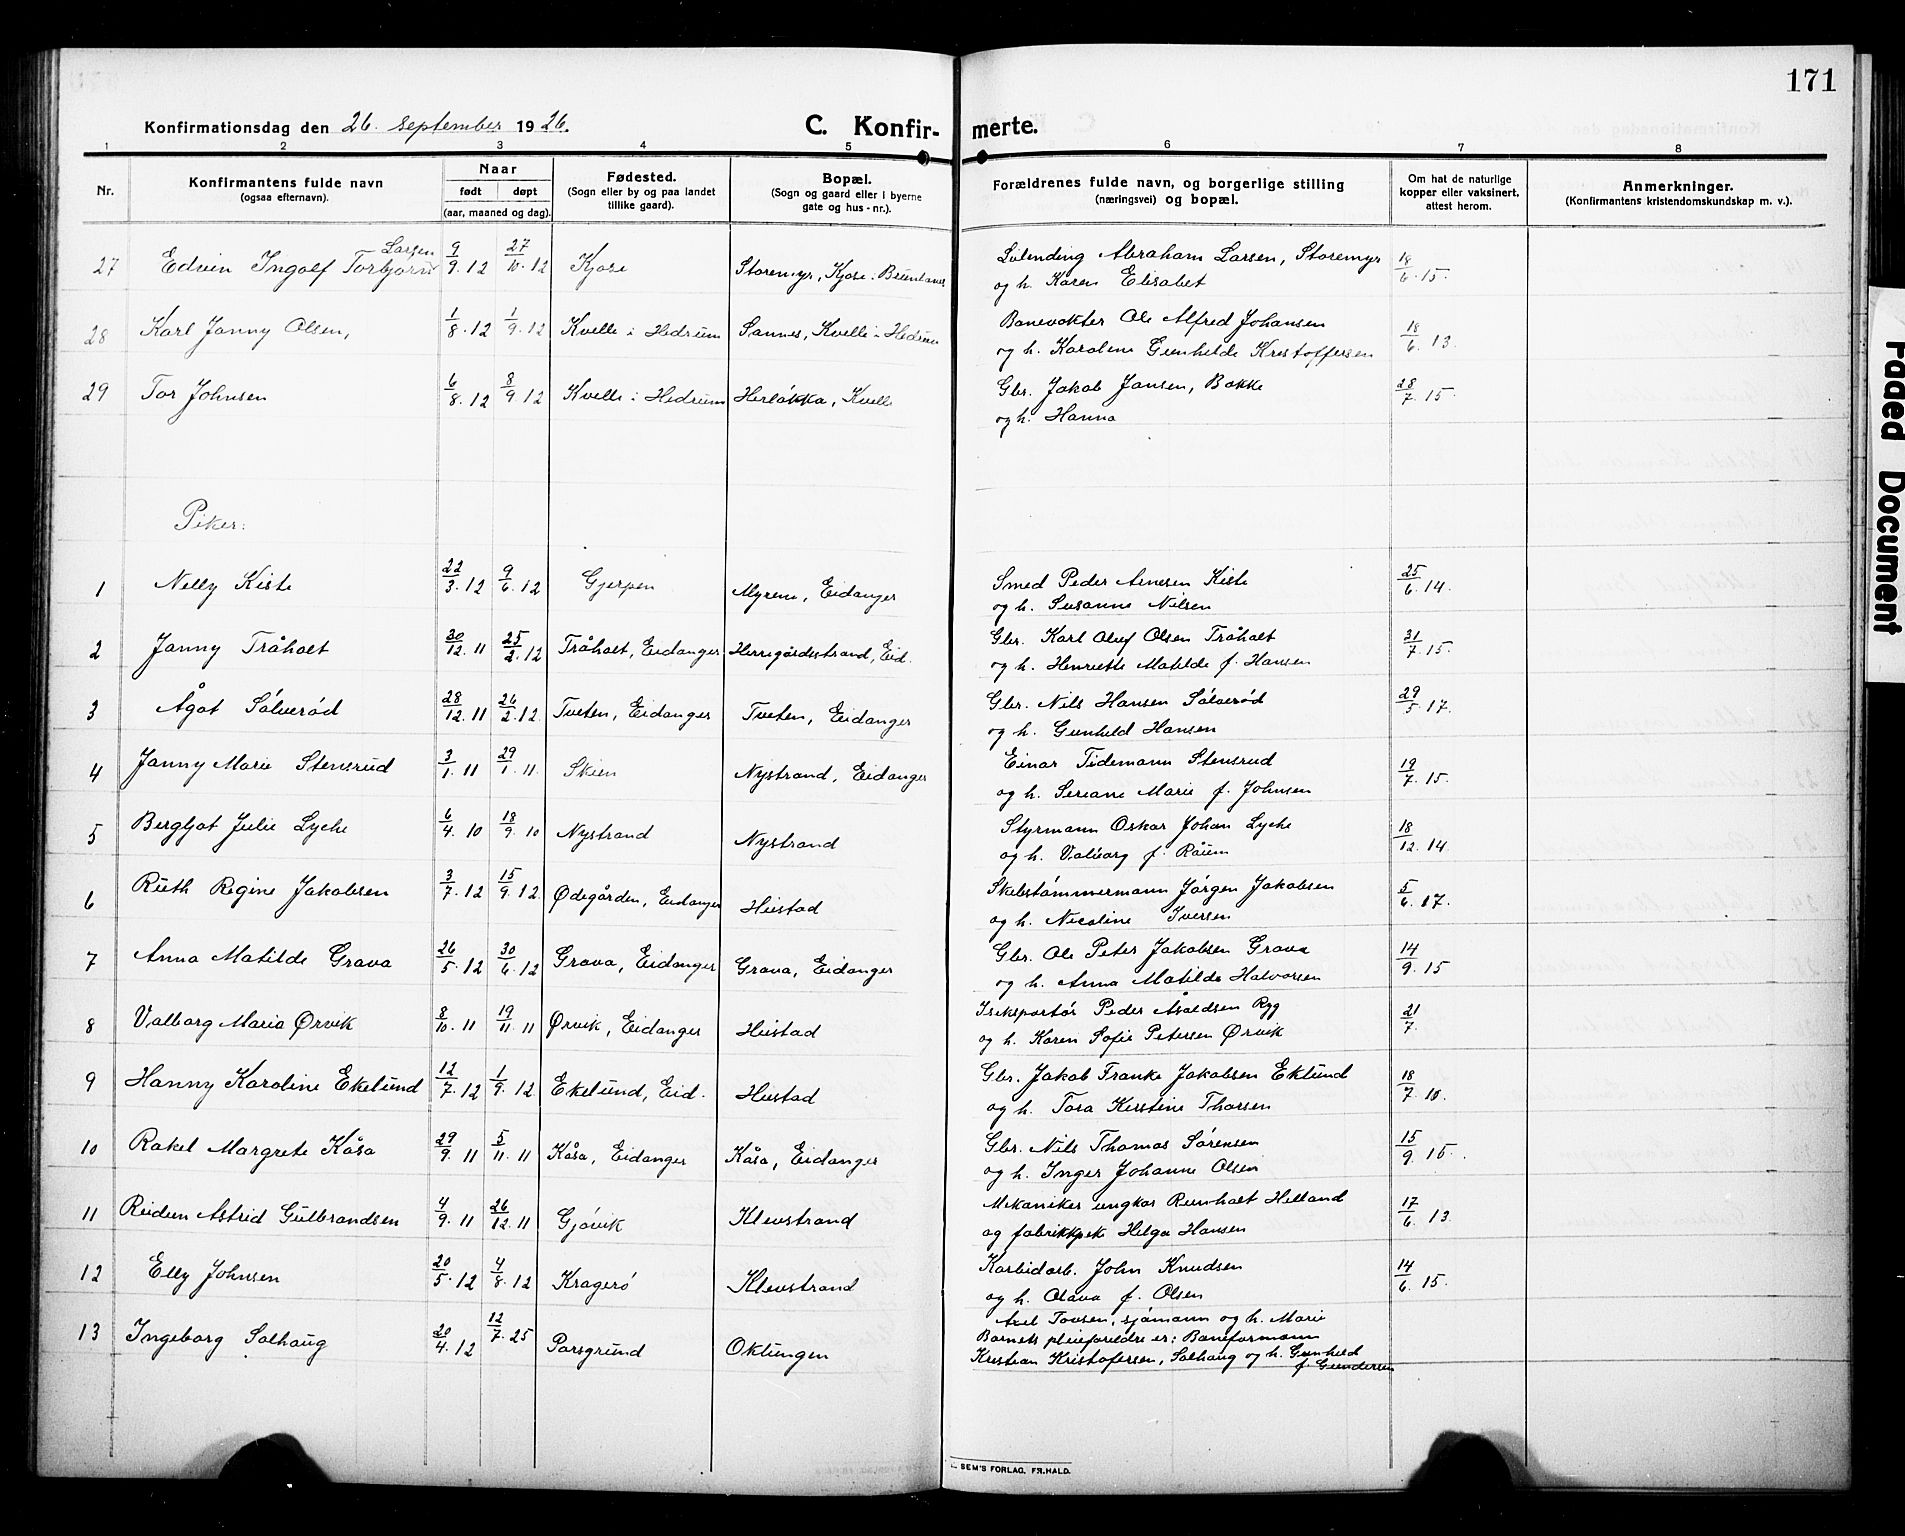 171
Konfirmationsdag den 26. september 1926.
C. Konfir-
merte.
1 2 3 4 5 6 7 8
Nr.
Konfirmantens fulde navn
(ogsaa efternavn).
Naar
født døpt
(aar, maaned og dag).
Fødested.
(Sogn eller by og paa landet
tillike gaard).
Bopæl.
(Sogn og gaard eller i byerne
gate og hus-nr.).
Forældrenes fulde navn, og borgerlige stilling
(næringsvei) og bopæl.
Om hat de naturlige
kopper eller vaksinert,
attest herom.
Anmerkninger.
(Konfirmantens kristendomskundskap m. v.).
Larsen
27 Edvin Ingolf Torbjørn 9/9.12 27/10.12 Kjose Storemyr, Kjose i Brunlanes Abraham Larsen, Storemyr 18/6.15.
og h. Karen Elisabet
28 Karl Janny Olsen, 1/8.12 1/9.12 Kvelle i Hedrum Sannes, Kvelle i Hedrum Banevokter Ole Alfred Johansen 18/6.13.
og h. Karoline Gunhilde Kristoffersen
29 Tor Johnsen 6/8.12 8/9.12 Kvelle i Hedrum Herløkka, Kvelle Gbr. Jakob Jansen, Bakke 28/7.15.
og h. Hanna
Piker:
1 Nelly Kiste 22/3.12 9/6.12 Gjerpen Myrene, Eidanger Smed Peder Arnesen Kiste 25/6.14.
og h. Susanne Nilsen
2 Janny Tråholt 30/12.11 25/2.12 Tråholt, Eidanger Herregårdsstrand, Eid. Gbr. Karl Oluf Olsen Tråholt 31/7.15.
og h. Henriette Matilde f. Hansen
3 Ågot Sølverød 28/12.11 26/2.12 Tveten, Eidanger Tveten, Eidanger Gbr. Nils Hansen Sølverød 29/5.17.
og h. Gunhild Hansen
4 Janny Marie Stensrud 3/1.11 29/1.11. Skien Nystrand, Eidanger Einar Tidemann Stensrud 19/7.15.
og h. Seriane Marie f. Johnsen
5 Bergljot Julie Lyche 6/4.10 18/9.10 Nystrand Nystrand Styrmann Oskar Johan Lyche 18/12.14.
og h. Valborg f. Råum
6 Ruth Regine Jakobsen 3/7.12 15/9.12 Ødegården, Eidanger Heistad Skibstømmermann Jørgen Jakobsen 5/6.17.
og h. Nicoline Iversen
7 Anna Matilde Grava 26/5.12 30/6.12 Grava, Eidanger Grava, Eidanger Gbr. Ole Peter Jakobsen Grava 14/9.15
og h. Anna Matilde Halvorsen
8 Valborg Maria Ørvik 8/10.11 19/11.11 Ørvik, Eidanger Heistad Iseksportør Peder Åsoldsen Ryg 21/7.
og h. Karen Sofie Petersen Ørvik
9 Hanny Karoline Ekelund 12/7.12 1/9.12 Ekelund, Eid. Heistad Gbr. Jakob Franke Jakobsen Eklund 18/7.10.
og h. Tora Kirstine Thorsen
10 Rakel Margrete Kåsa 29/9.11 5/11.11 Kåsa, Eidanger Kåsa, Eidanger Gbr. Nils Thomas Sørensen 15/9.15.
og h. Inger Johanne Olsen
11 Reidun Astrid Gulbrandsen 4/9.11 26/12.11 Gjøvik Klevstrand Mekaniker ungkar Reinholt Helland 17/6.13.
og fabrikkpike Helga Hansen
12 Elly Johnsen 20/5.12 4/8.12 Kragerø Klevstrand Karbidarb. John Knudsen 14/6.15.
og h. Olava f. Olsen
13 Ingeborg Solhaug 20/4.12 12/7.25 Porsgrund Oklungen Axel Tovsen, sjømann og h. Marie
Barnets pleieforeldre er: Baneformann
Kristian Kristofersen, Solhaug og h. Gunhild
f. Gundersen
SEM'S FORLAG, FR.HALD.
Faded Document